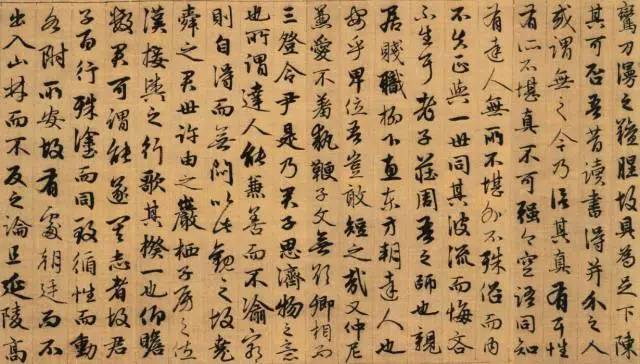 鸞刀漫之羶腥故具為足下陳
其可否吾昔讀書得并介之人
或謂無之今乃信其真有耳性
有所不堪真不可強今空語同知
有達人無所不堪外不殊俗而內
不失正與一世同其波流而悔吝
不生耳老子莊周吾之師也親
居賤職柳下惠東方朔達人也
安乎卑位吾豈敢短之哉又仲尼
兼愛不羞執鞭子文無欲卿相而
三登令尹是乃君子思濟物之意
也所謂達人能兼善而不渝窮
則自得而無悶以此觀之故堯
舜之君世許由之巖栖子房之佐
漢接輿之行歌其揆一也仰瞻
數君可謂能遂其志者故君
子百行殊塗而同致循性而動
各附所安故有處朝廷而不
出入山林而不反之論且延陵高